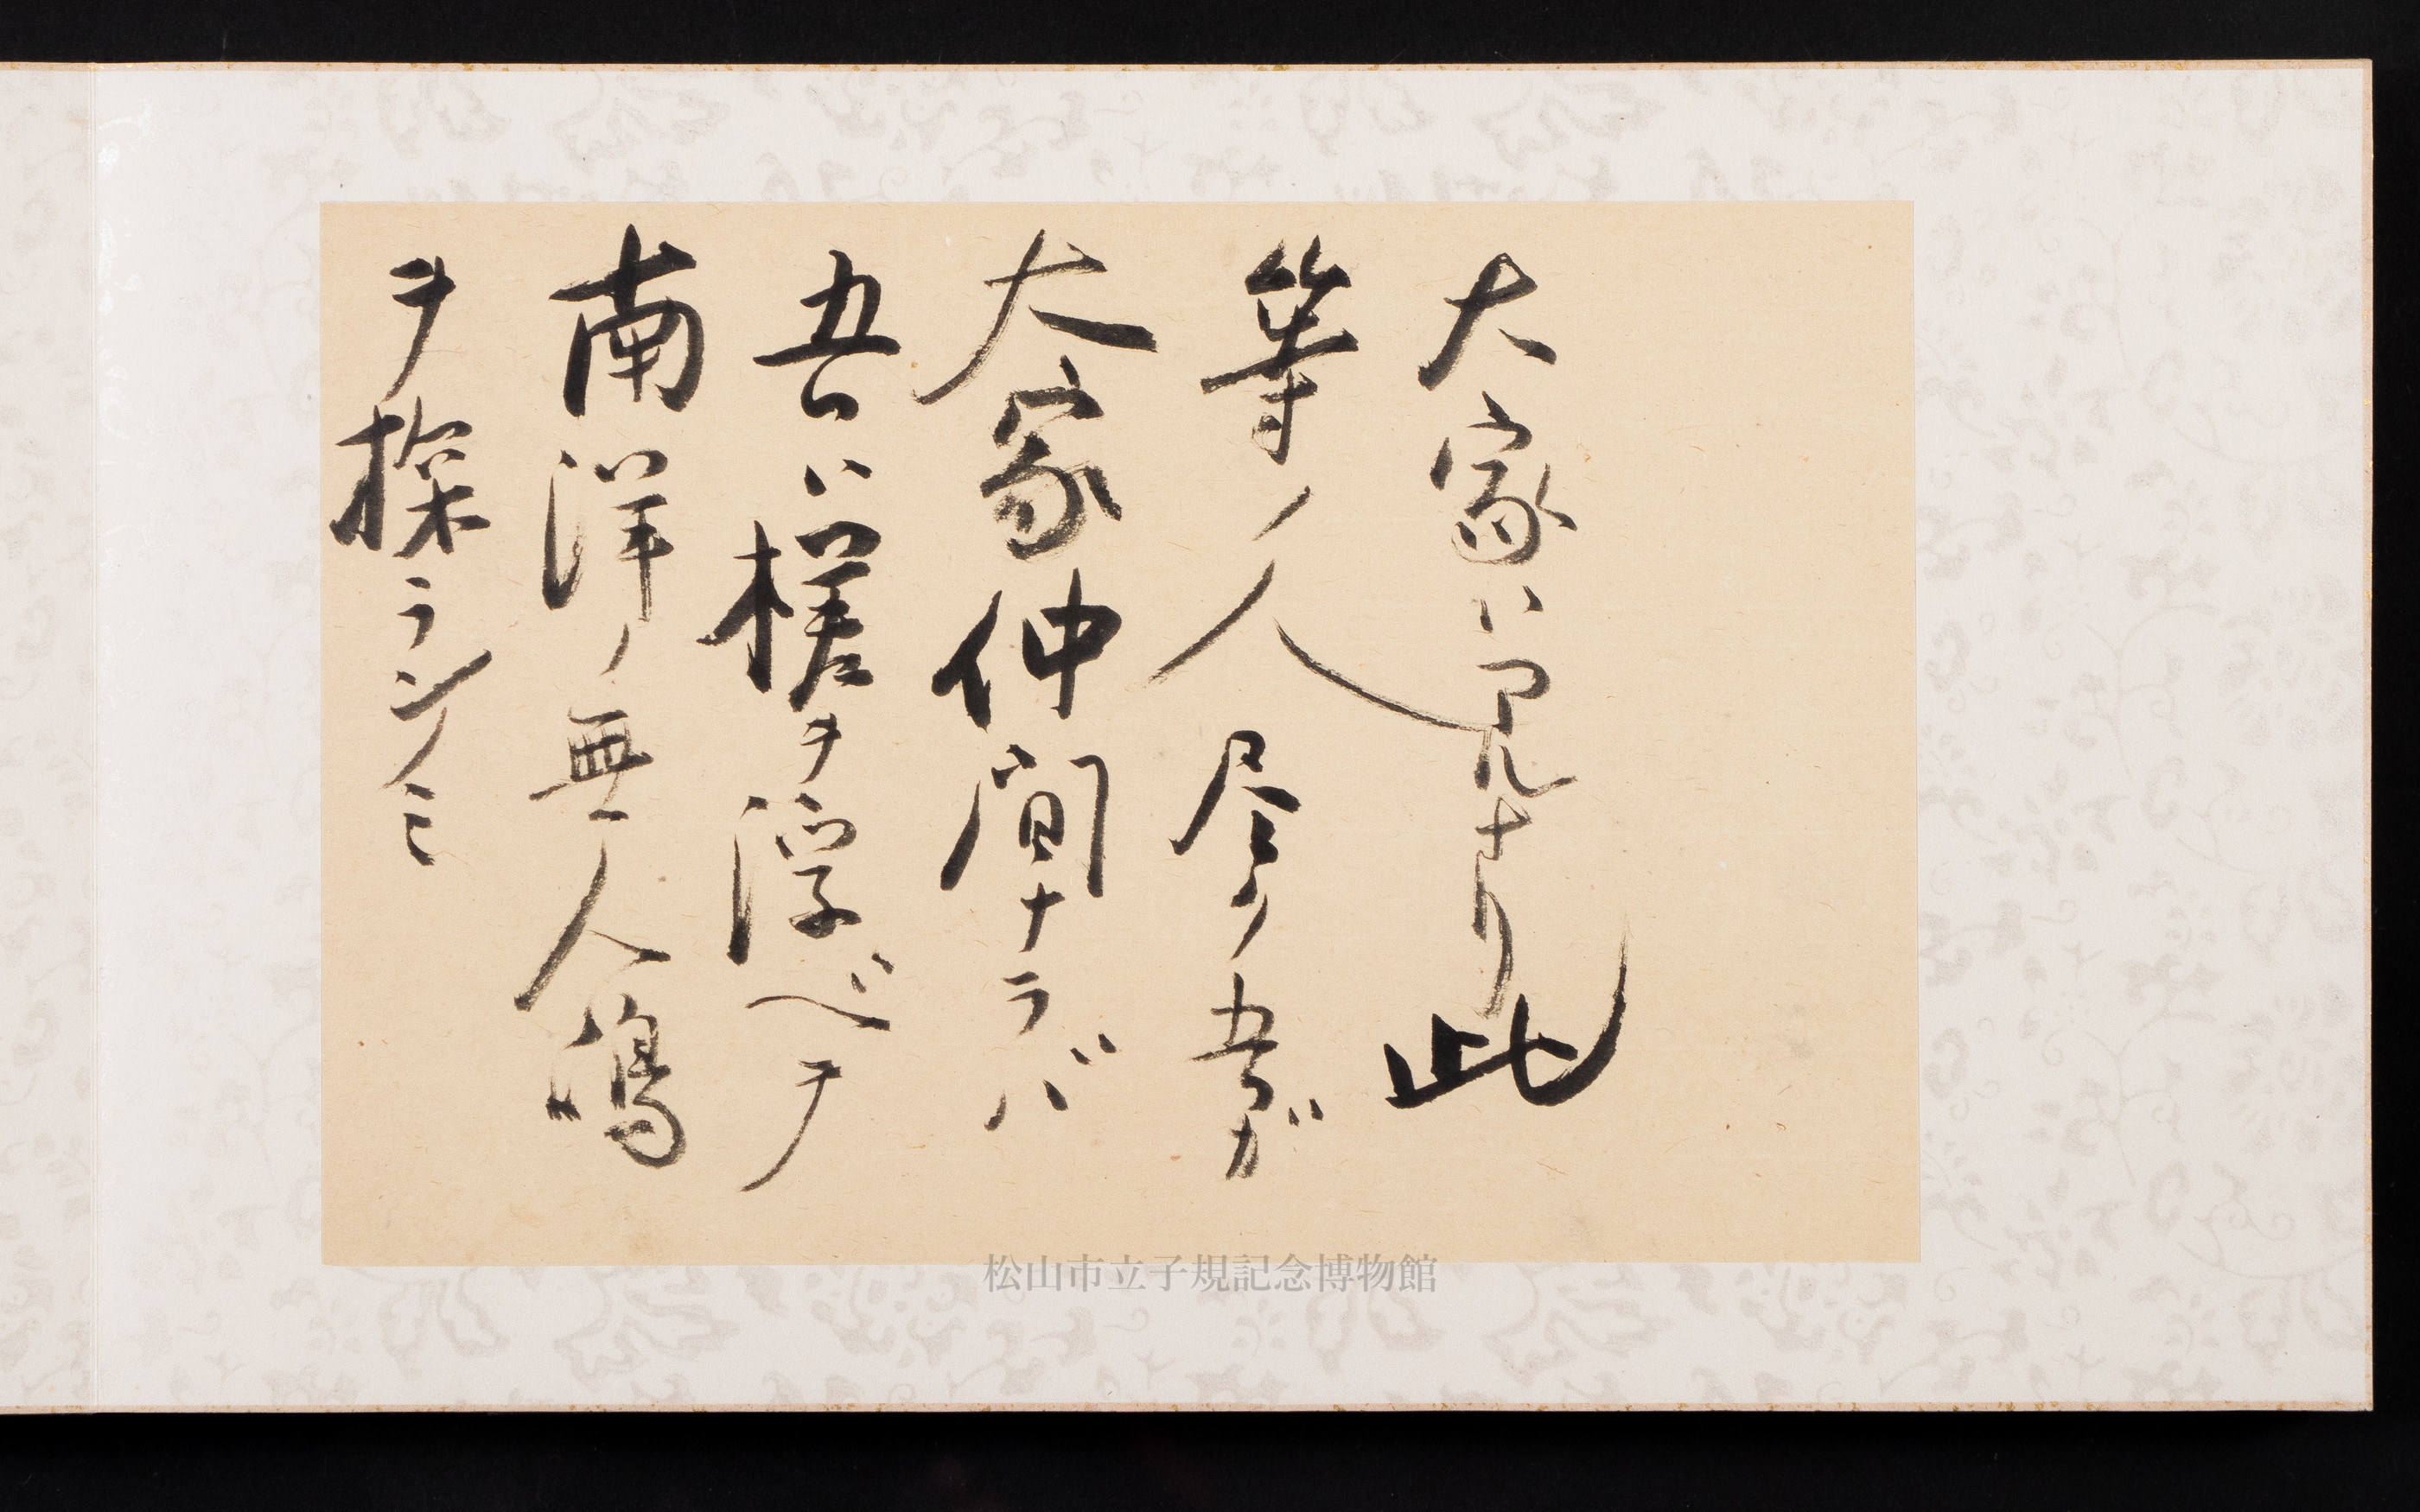 大家ハナリ此
等ノ人尽ク吾ガ
大家仲間ナラバ
吾ハ槎ヲ浮ベテ
南洋ノ無人嶋
ヲ探ランノミ
松山市立子規記念博物館